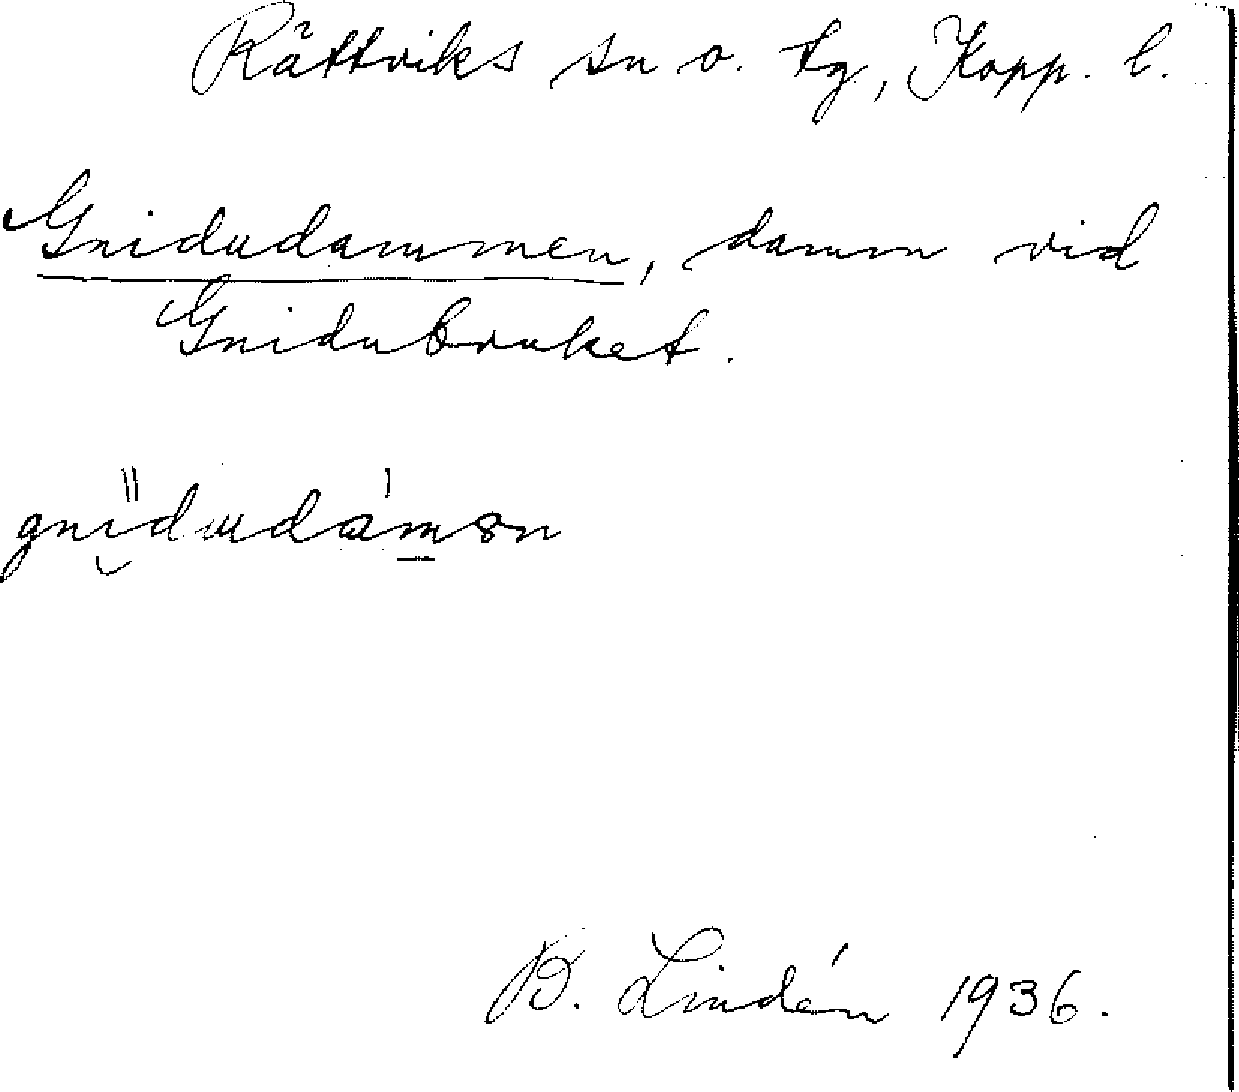 Rättviks sn o. tg, Kopp. l.
Gnidudammen, damm vid
Gnidubruket.
B. Lindén 1936.